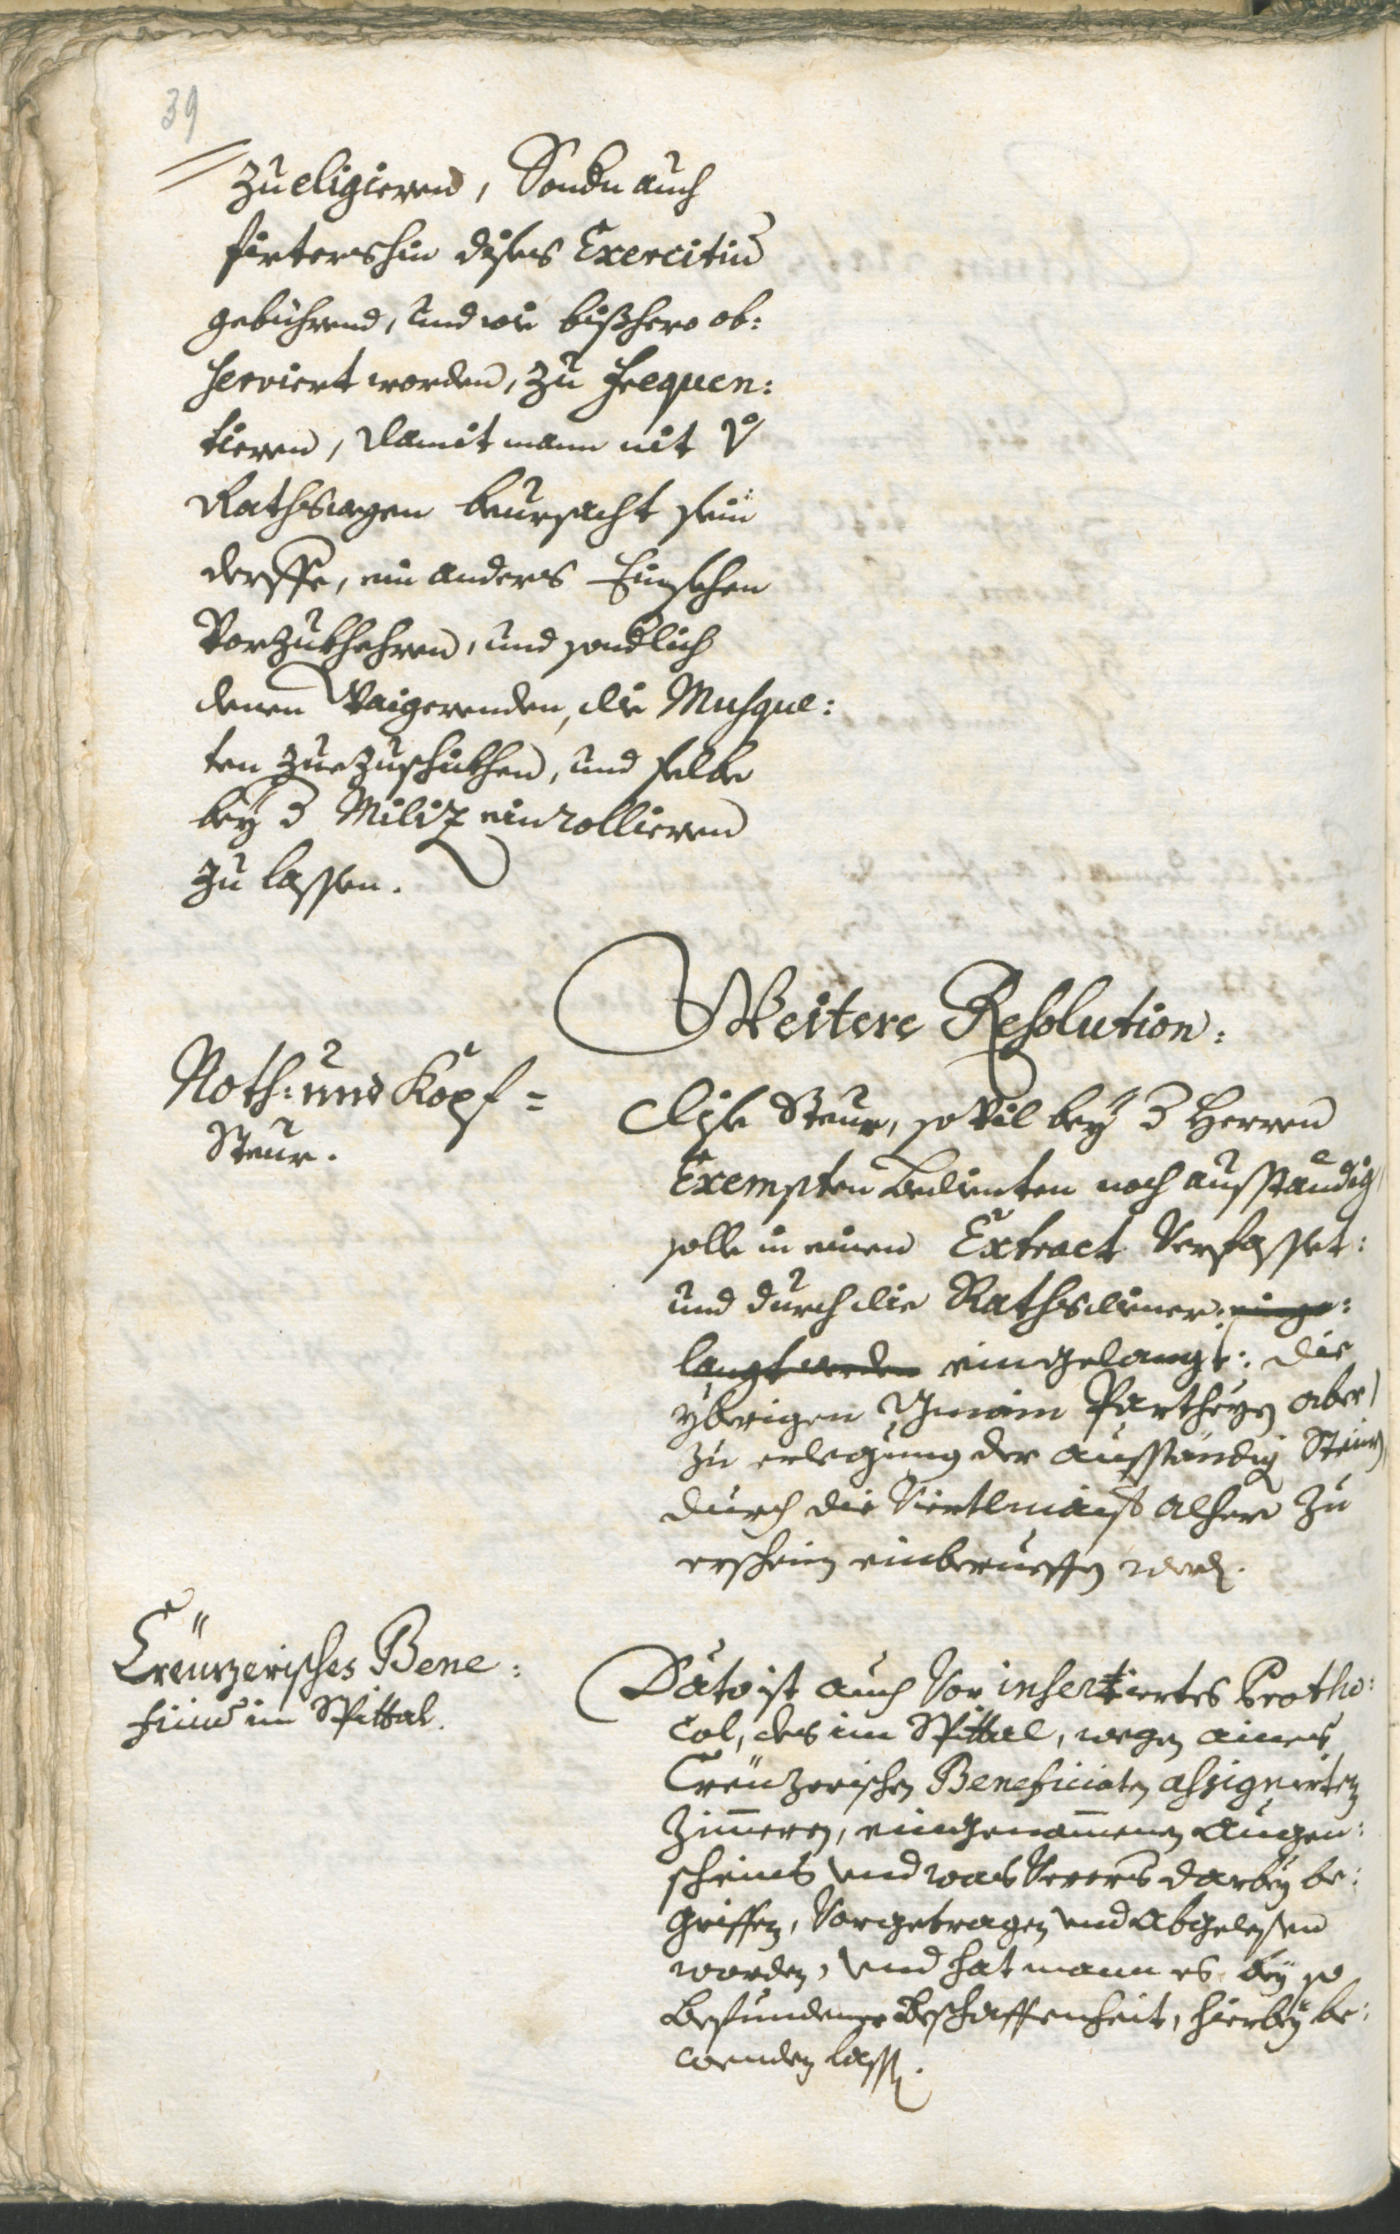 39
zu eligieren, Sondn auch
firtershin dises Exercitiu
gebührend, und wie bißhero ob:
serviert worden, zu frequen:
tieren, damit mann nit v
Rathswegen beursacht sein
derffe, ein anders Einsehen
Vorzukhehren, und sondlich
denen Waigerenden, die Musque:
ten zuezuschikhen, und selbe
bey d Miliz einrollieren
zu lassen.
Weitere Resolution:
Noth: und Kopf=
Steur.
Dise Steur, so Vil bey d Herren
Exempten Bedienten noch ausständig
solle in einen Extract Verfasset:
und durch die Rathsdiener: einge:
langt werden eingelangt: die
yberigen Partheyen aber
zu erlegung der ausständig Steur
durch die Viertlmaist alhero zu
erscheinen einberueffen werd.
Creuzerisches Bene:
ficiu im Spittal.
Dato ist auch Vor insertiertes Protho:
col, des im Spittal, wegen aines
Creuzerischen Beneficiaten assignirten
Zimmeren, eingenommenen Augen:
scheins und was Verers darbey be:
griffen, Vorgetragen und Abgelesen
worden, und hat mann es bey so
befundener Beschaffenheit, hierbey be:
wenden lassen.